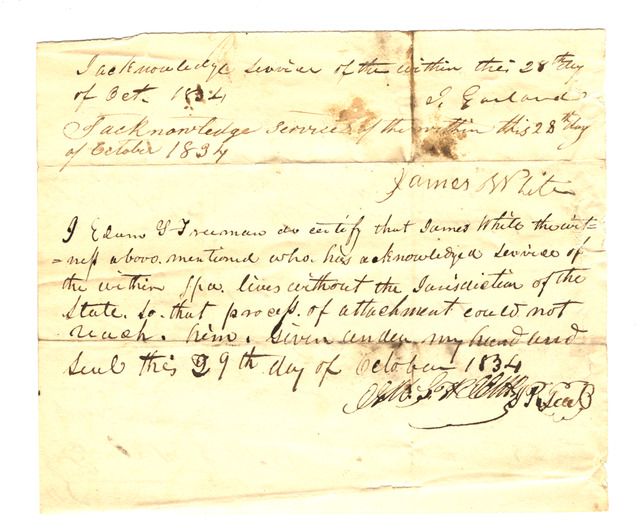 I acknowledge service of the within this 28th day
of Oct. 1834
J. Garland
I acknowledge service of the within this 28th day
of October 1834
James White
I Edwin G Freeman do certify that James White the wit-
-ness above mentioned who has acknowledged service of
the within spa. lives without the Jurisdiction of the
State so that process of attachment could not
reach him. Given under my hand and
seal this 29th day of October 1834